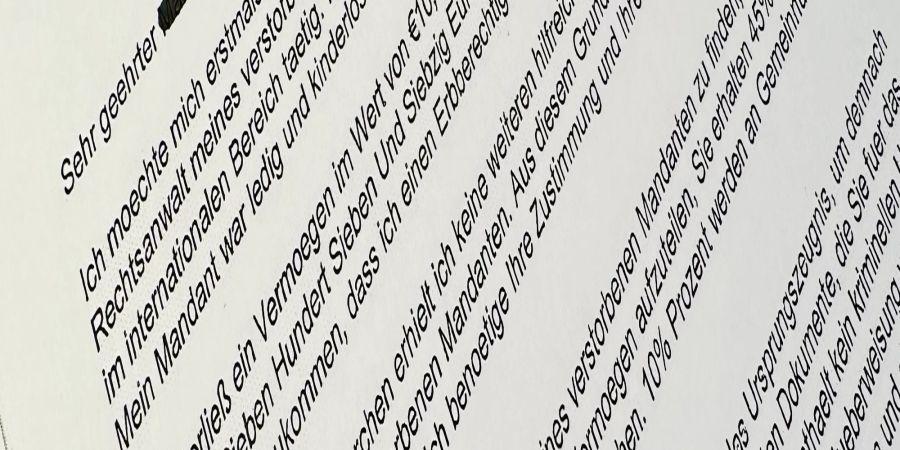 Sehr geehrter
Ich moechte mich erstmals
Rechtsanwalt meines verstorb
im internationalen Bereich taetig.
Mein Mandant war ledig und kinderlos
rließ ein Vermoegen im Wert von €10,
ieben Hundert Sieben Und Siebzig Eur
ukommen, dass ich einen Erbberechtig
rchen erhielt ich keine weiteren hilfreich
rbenen Mandanten. Aus diesem Grund
ch benoetige Ihre Zustimmung und Ihre
ines verstorbenen Mandanten zu finden
ermoegen aufzuteilen, Sie erhalten 45%
hen. 10% Prozent werden an Gemeinn
das Ursprungszeugnis, um demnach
en Dokumente, die Sie fuer das
nthaelt kein kriminellen
ueberweisung
und